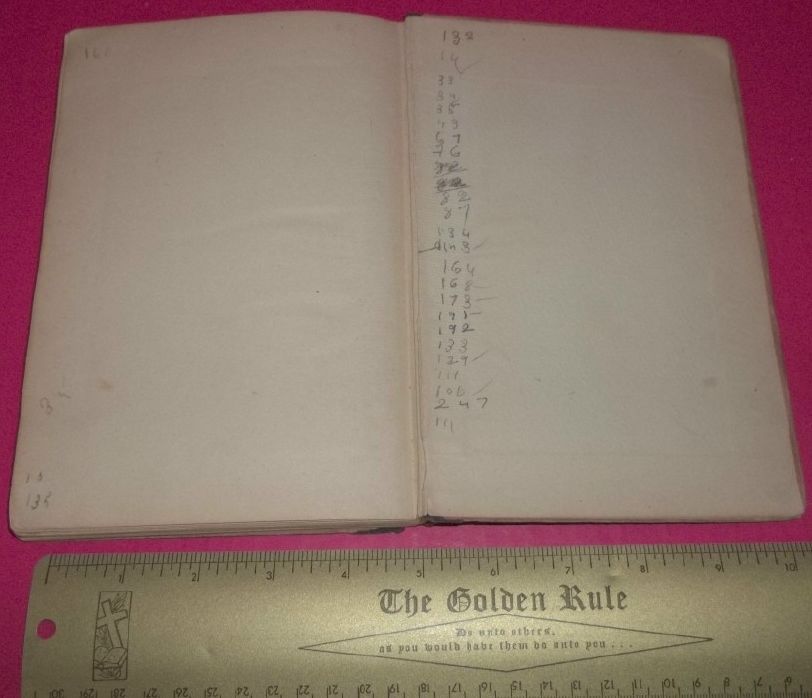 132
14
33
34
35
43
57
76
82
87
134
164
168
173
191
192
133
129
111
106
247
111
135
1 2 3 4 5 6 7 8 9 10
The Golden Rule
Do unto others,
as you would have them do unto you . . .
30 29 28 27 26 25 24 23 22 21 20 19 18 17 16 15 14 13 12 11 10 9 8 7 6